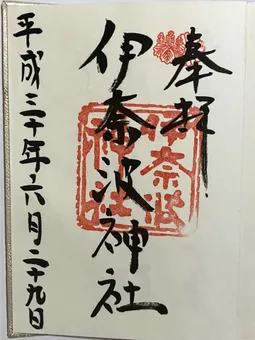 奉拝
伊奈波神社
平成三十年六月二十九日
伊奈波
神社